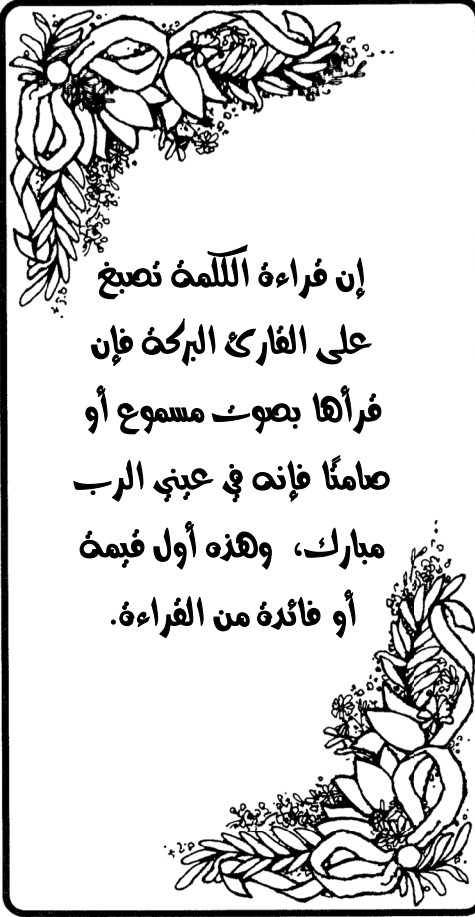 إن قراءة الكلمة تصبغ
على القارئ البركة فإن
قرأها بصوت مسموع أو
صامتًا فإنه في عيني الرب
مبارك، وهذه أول قيمة
أو فائدة من القراءة.